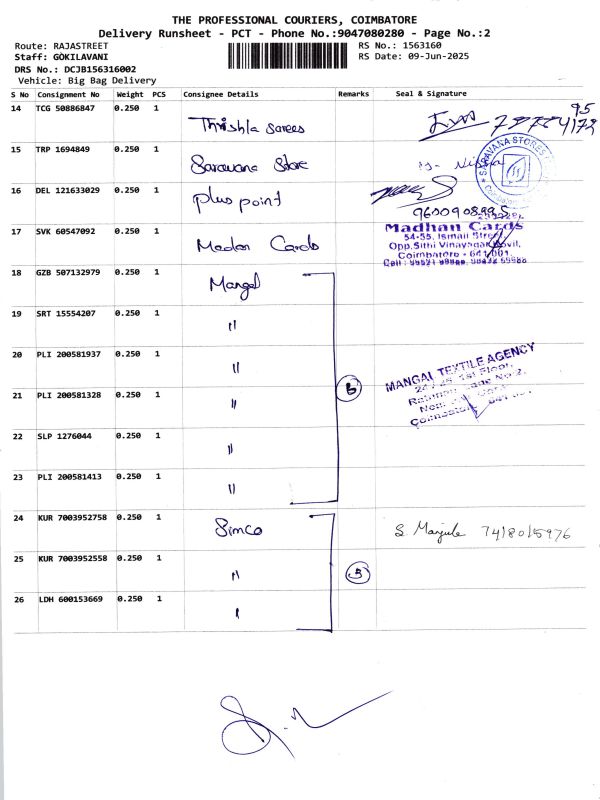 THE PROFESSIONAL COURIERS, COIMBATORE
Delivery Runsheet - PCT - Phone No.:9047080280 - Page No.:2
Route: RAJASTREET
RS No.: 1563160
Staff: GOKILAVANI
RS Date: 09-Jun-2025
DRS No.: DCJB156316002
Vehicle: Big Bag Delivery
S No Consignment No Weight PCS Consignee Details Remarks Seal & Signature
14 TCG 50886847 0.250 1 Thrishla Sarees
15 TRP 1694849 0.250 1 Saravana Store
SARAVANA STORES
16 DEL 121633029 0.250 1 plus point
17 SVK 60547092 0.250 1 Madan Cards
Madhan Cards
54-55, Ismail Street
Opp.Sithi Vinayagar Kovil,
Coimbatore - 641 001.
18 GZB 507132979 0.250 1 Mangal
19 SRT 15554207 0.250 1 "
20 PLI 200581937 0.250 1 "
21 PLI 200581328 0.250 1 "
MANGAL TEXTILE AGENCY
1st Floor,
22 SLP 1276044 0.250 1 "
23 PLI 200581413 0.250 1 "
24 KUR 7003952758 0.250 1 Simco
25 KUR 7003952558 0.250 1 "
26 LDH 600153669 0.250 1 "